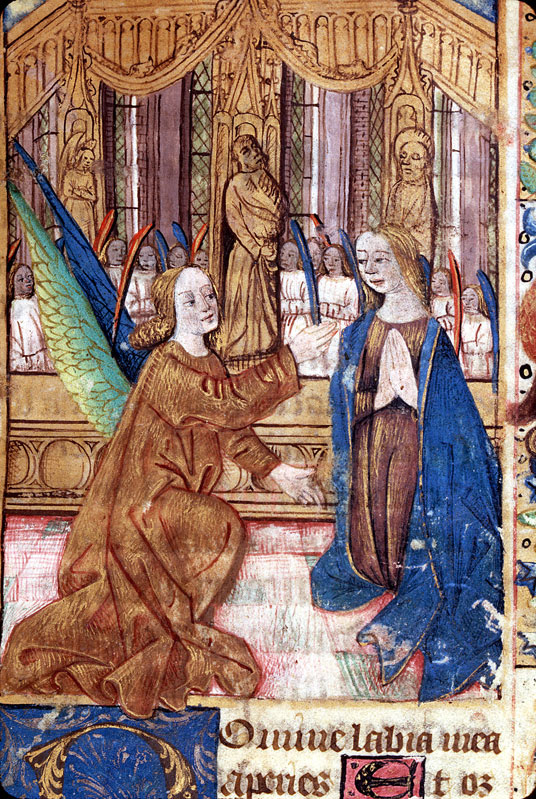 Domine labia mea
aperies Et os